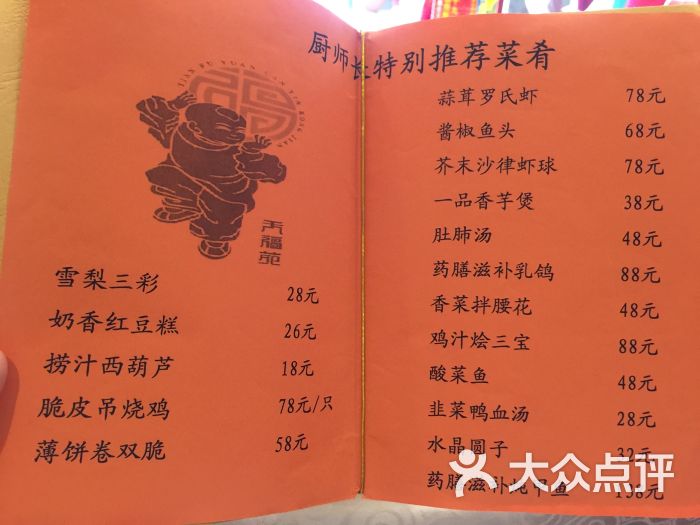 厨师长特别推荐菜肴
TIAN FU YUAN
天福苑
雪梨三彩 28元
奶香红豆糕 26元
捞汁西葫芦 18元
脆皮吊烧鸡 78元/只
薄饼卷双脆 58元
蒜茸罗氏虾 78元
酱椒鱼头 68元
芥末沙律虾球 78元
一品香芋煲 38元
肚肺汤 48元
药膳滋补乳鸽 88元
香菜拌腰花 48元
鸡汁烩三宝 88元
酸菜鱼 48元
韭菜鸭血汤 28元
水晶圆子 32元
药膳滋补炖甲鱼 138元
大众点评